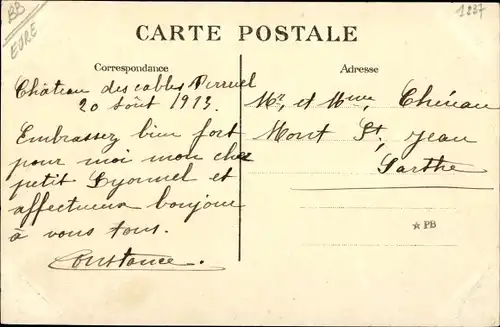 BB
EURE
1237
CARTE POSTALE
Correspondance
Adresse
Château des sables Perruel
20 Août 1913.
Embrassez bien fort
pour moi mon cher
petit Lyonnel et
affectueux bonjour
à vous tous.
Constance.
Mr, et Mme, Chéneau
Mont St, Jean
Sarthe
PB